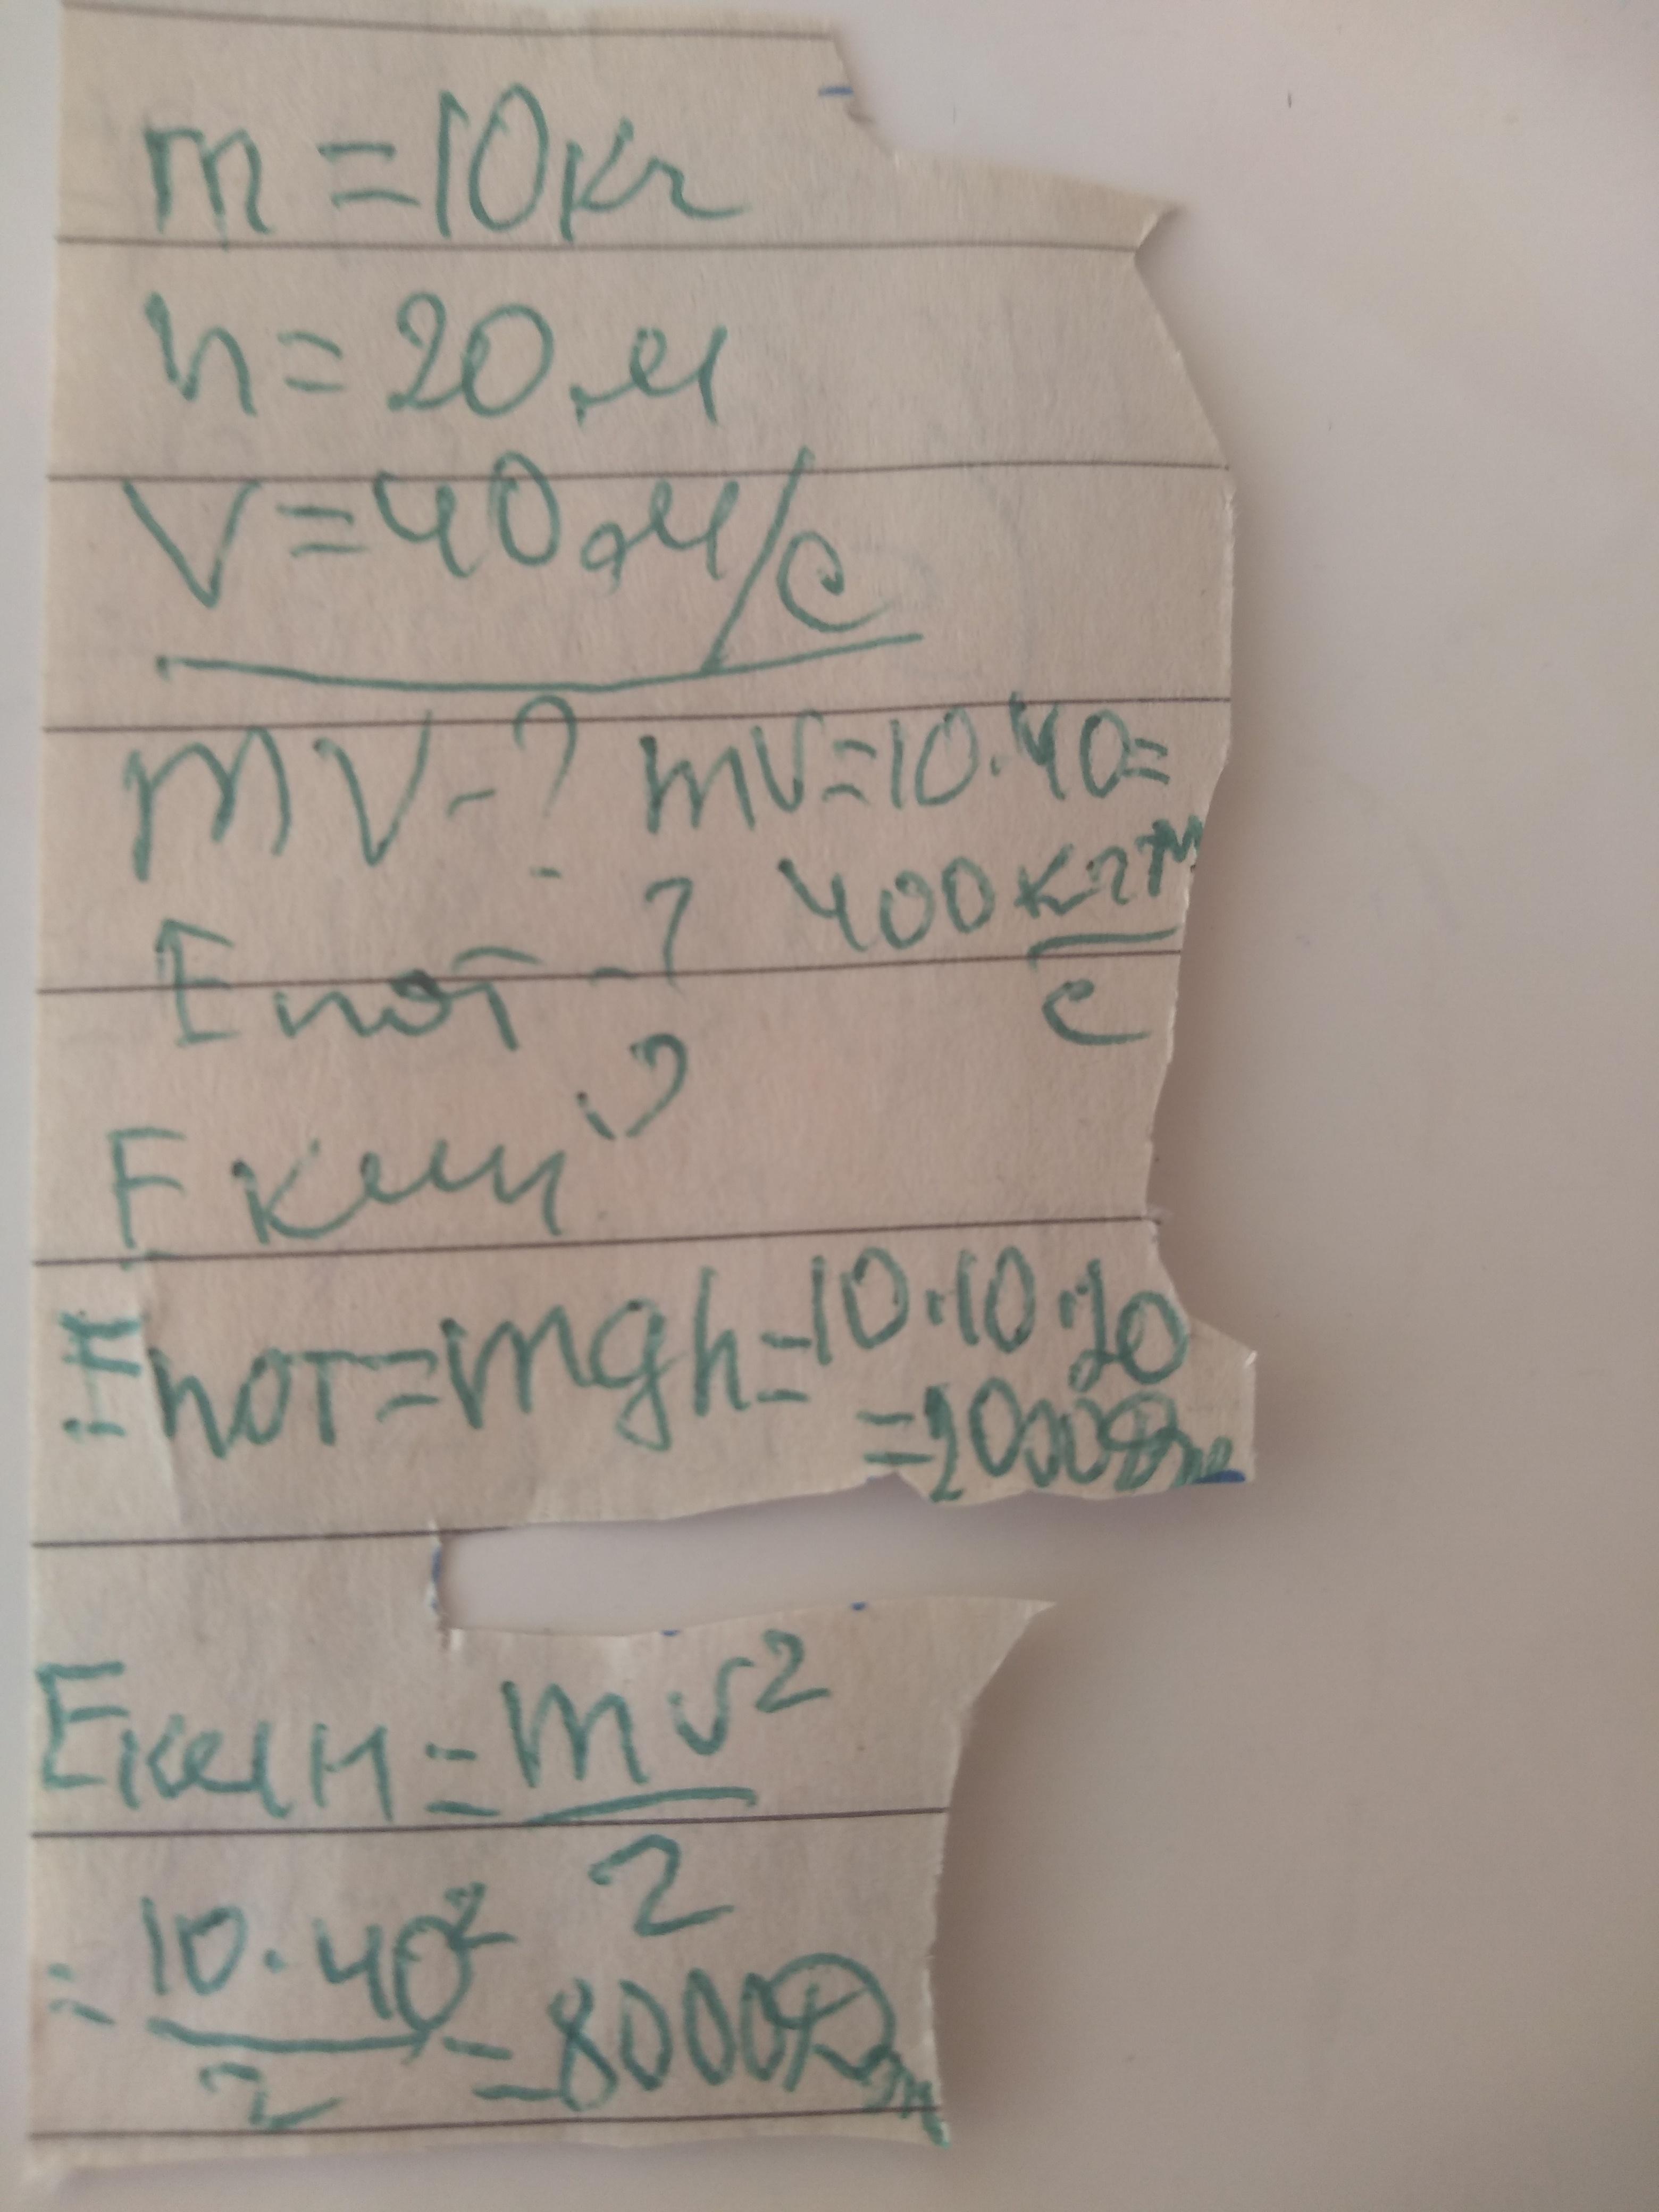 m = 10 кг
h = 20 м
V = 40 м/с
mV - ? mV = 10 · 40 =
400 кг м/с
Eпот - ?
Eкин ?
Eпот = mgh = 10 · 10 · 20
= 2000 Дж
Eкин = mv²/2
= 10 · 40²/2 = 8000 Дж